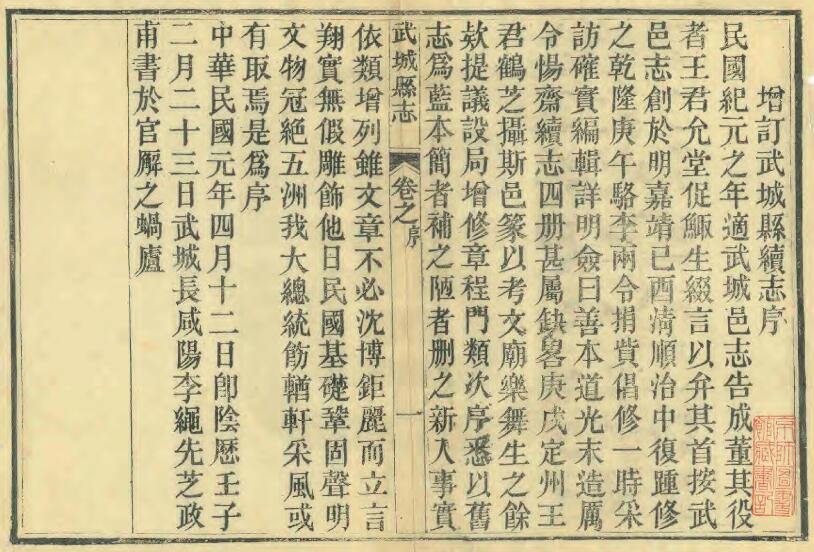 增訂武城縣續志序
民國紀元之年適武城邑志告成董其役
者王君允堂促鯫生綴言以弁其首按武
邑志創於明嘉靖已酉淸順治中復踵修
之乾隆庚午駱李兩令捐貲倡修一時采
訪確實編輯詳明僉曰善本道光末造厲
令惕齋續志四册甚屬缺畧庚戌定州王
君鶴芝攝斯邑篆以考文廟樂舞生之餘
欵提議設局增修章程門類次序悉以舊
志爲藍本簡者補之陋者删之新入事實
武城縣志 卷之序 一
依類增列雖文章不必沈博鉅麗而立言
翔實無假雕飾他日民國基礎鞏固聲明
文物冠絕五洲我大總統飭輶軒采風或
有取焉是爲序
中華民國元年四月十二日卽陰厯壬子
二月二十三日武城長咸陽李繩先芝政
甫書於官廨之蝸廬